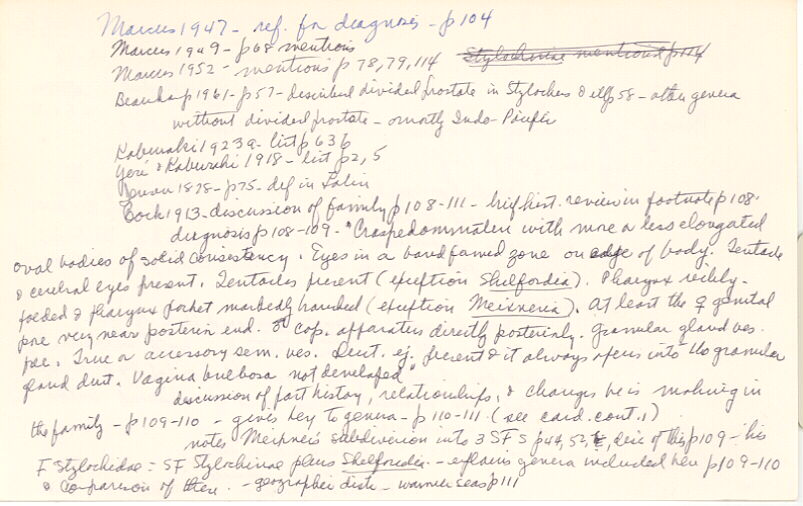 Marcus 1947 - ref. for diagnosis - p 104
Marcus 1949 - p 68 mentions
Marcus 1952 - mentions p 78, 79, 114 Stylochinae mentioned p 114
p 1961 - p 57 - described divided prostate in Stylochus & p 58 - other genera
without divided prostate - mostly Indo-Pacific
Kaburaki 1923a - list p 636
Yeri & Kaburaki 1918 - list p 2, 5
1878 - p 75 - def in Latin
Bock 1913 - discussion of family p 108-111 - brief hist. review in footnote p 108.
diagnosis p 108-109 - "Craspedommaten with more or less elongated
oval bodies of solid consistency. Eyes in a band formed zone on edge of body. Tentacle
& cerebral eyes present. Tentacles present (exception Shelfordia). Pharynx richly-
folded & pharynx pocket markedly branched (exception Meixneria). At least the ♀ genital
pore very near posterior end. ♂ cop. apparatus directly posteriorly. Granular gland ves.
pre. True or accessory sem. ves. Duct. ej. present & it always opens into the granular
gland duct. Vagina bulbosa not developed"
discussion of past history, relationships, & changes he is making in
the family - p 109-110 - gives key to genera - p 110-111 (see card. cont. 1)
notes Meixner's subdivision into 3 SF's p 44, 52, disc of this p 109 - his
F Stylochidae = SF Stylochinae plus Shelfordia - explains genera included here p 109-110
& comparison of them. - geographic distr - warmer seas p 111